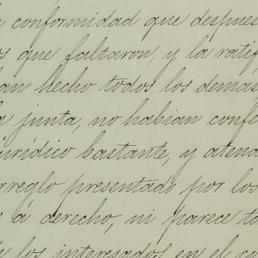 conformidad que despues
que faltaron, y la ratif
han hecho todos los demas
junta, no habian confe
juridico bastante, y atend
arreglo presentado por los
á derecho, ni parece to
los interesados en el cu